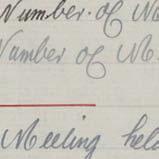 Number. of M
Number of M
Meeting hel